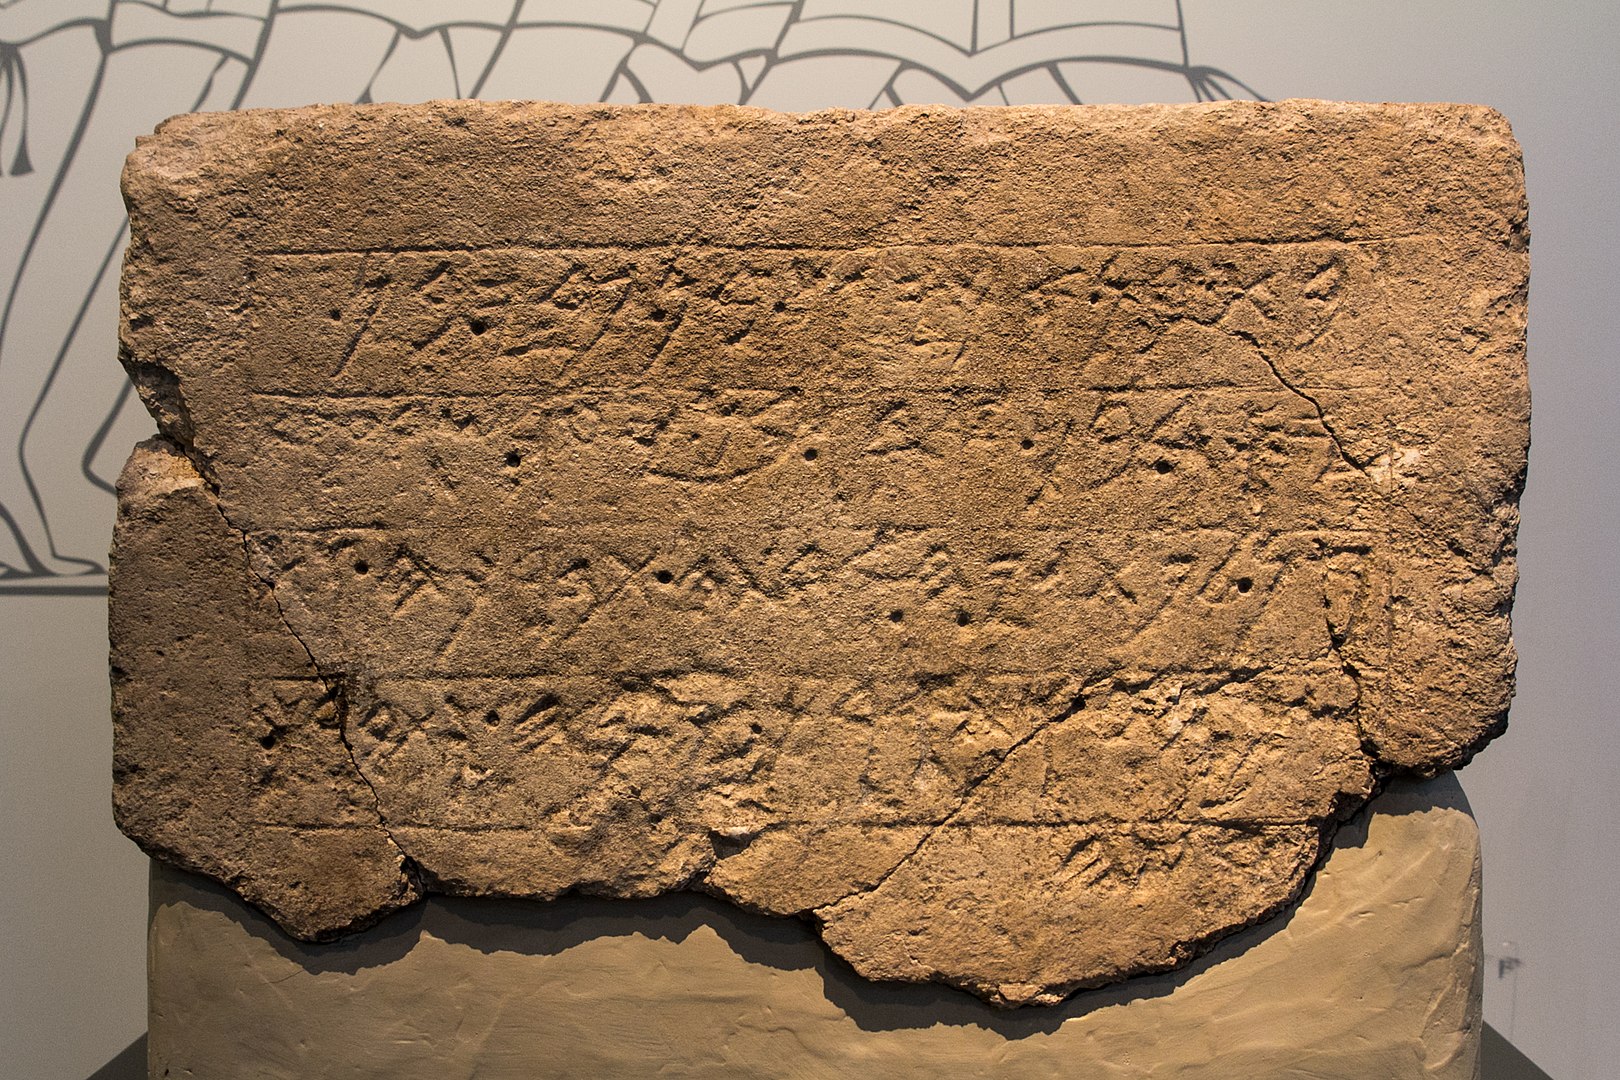 𐤁𐤕.𐤁𐤍.𐤀𐤊𐤉𐤔.𐤁𐤍.𐤐𐤃𐤉.𐤁𐤍.
𐤉𐤎𐤃.𐤁𐤍.𐤀𐤃𐤀.𐤁𐤍.𐤉𐤏𐤓.𐤔𐤓.𐤏𐤒
𐤓𐤍.𐤋𐤐𐤕𐤂𐤉𐤄.𐤀𐤃𐤕𐤄.𐤕𐤁𐤓𐤊𐤄.𐤅𐤕𐤔
𐤌𐤓𐤄.𐤅𐤕𐤀𐤓𐤊.𐤉𐤌𐤄.𐤅𐤕𐤁𐤓𐤊.
𐤀𐤓𐤑𐤄